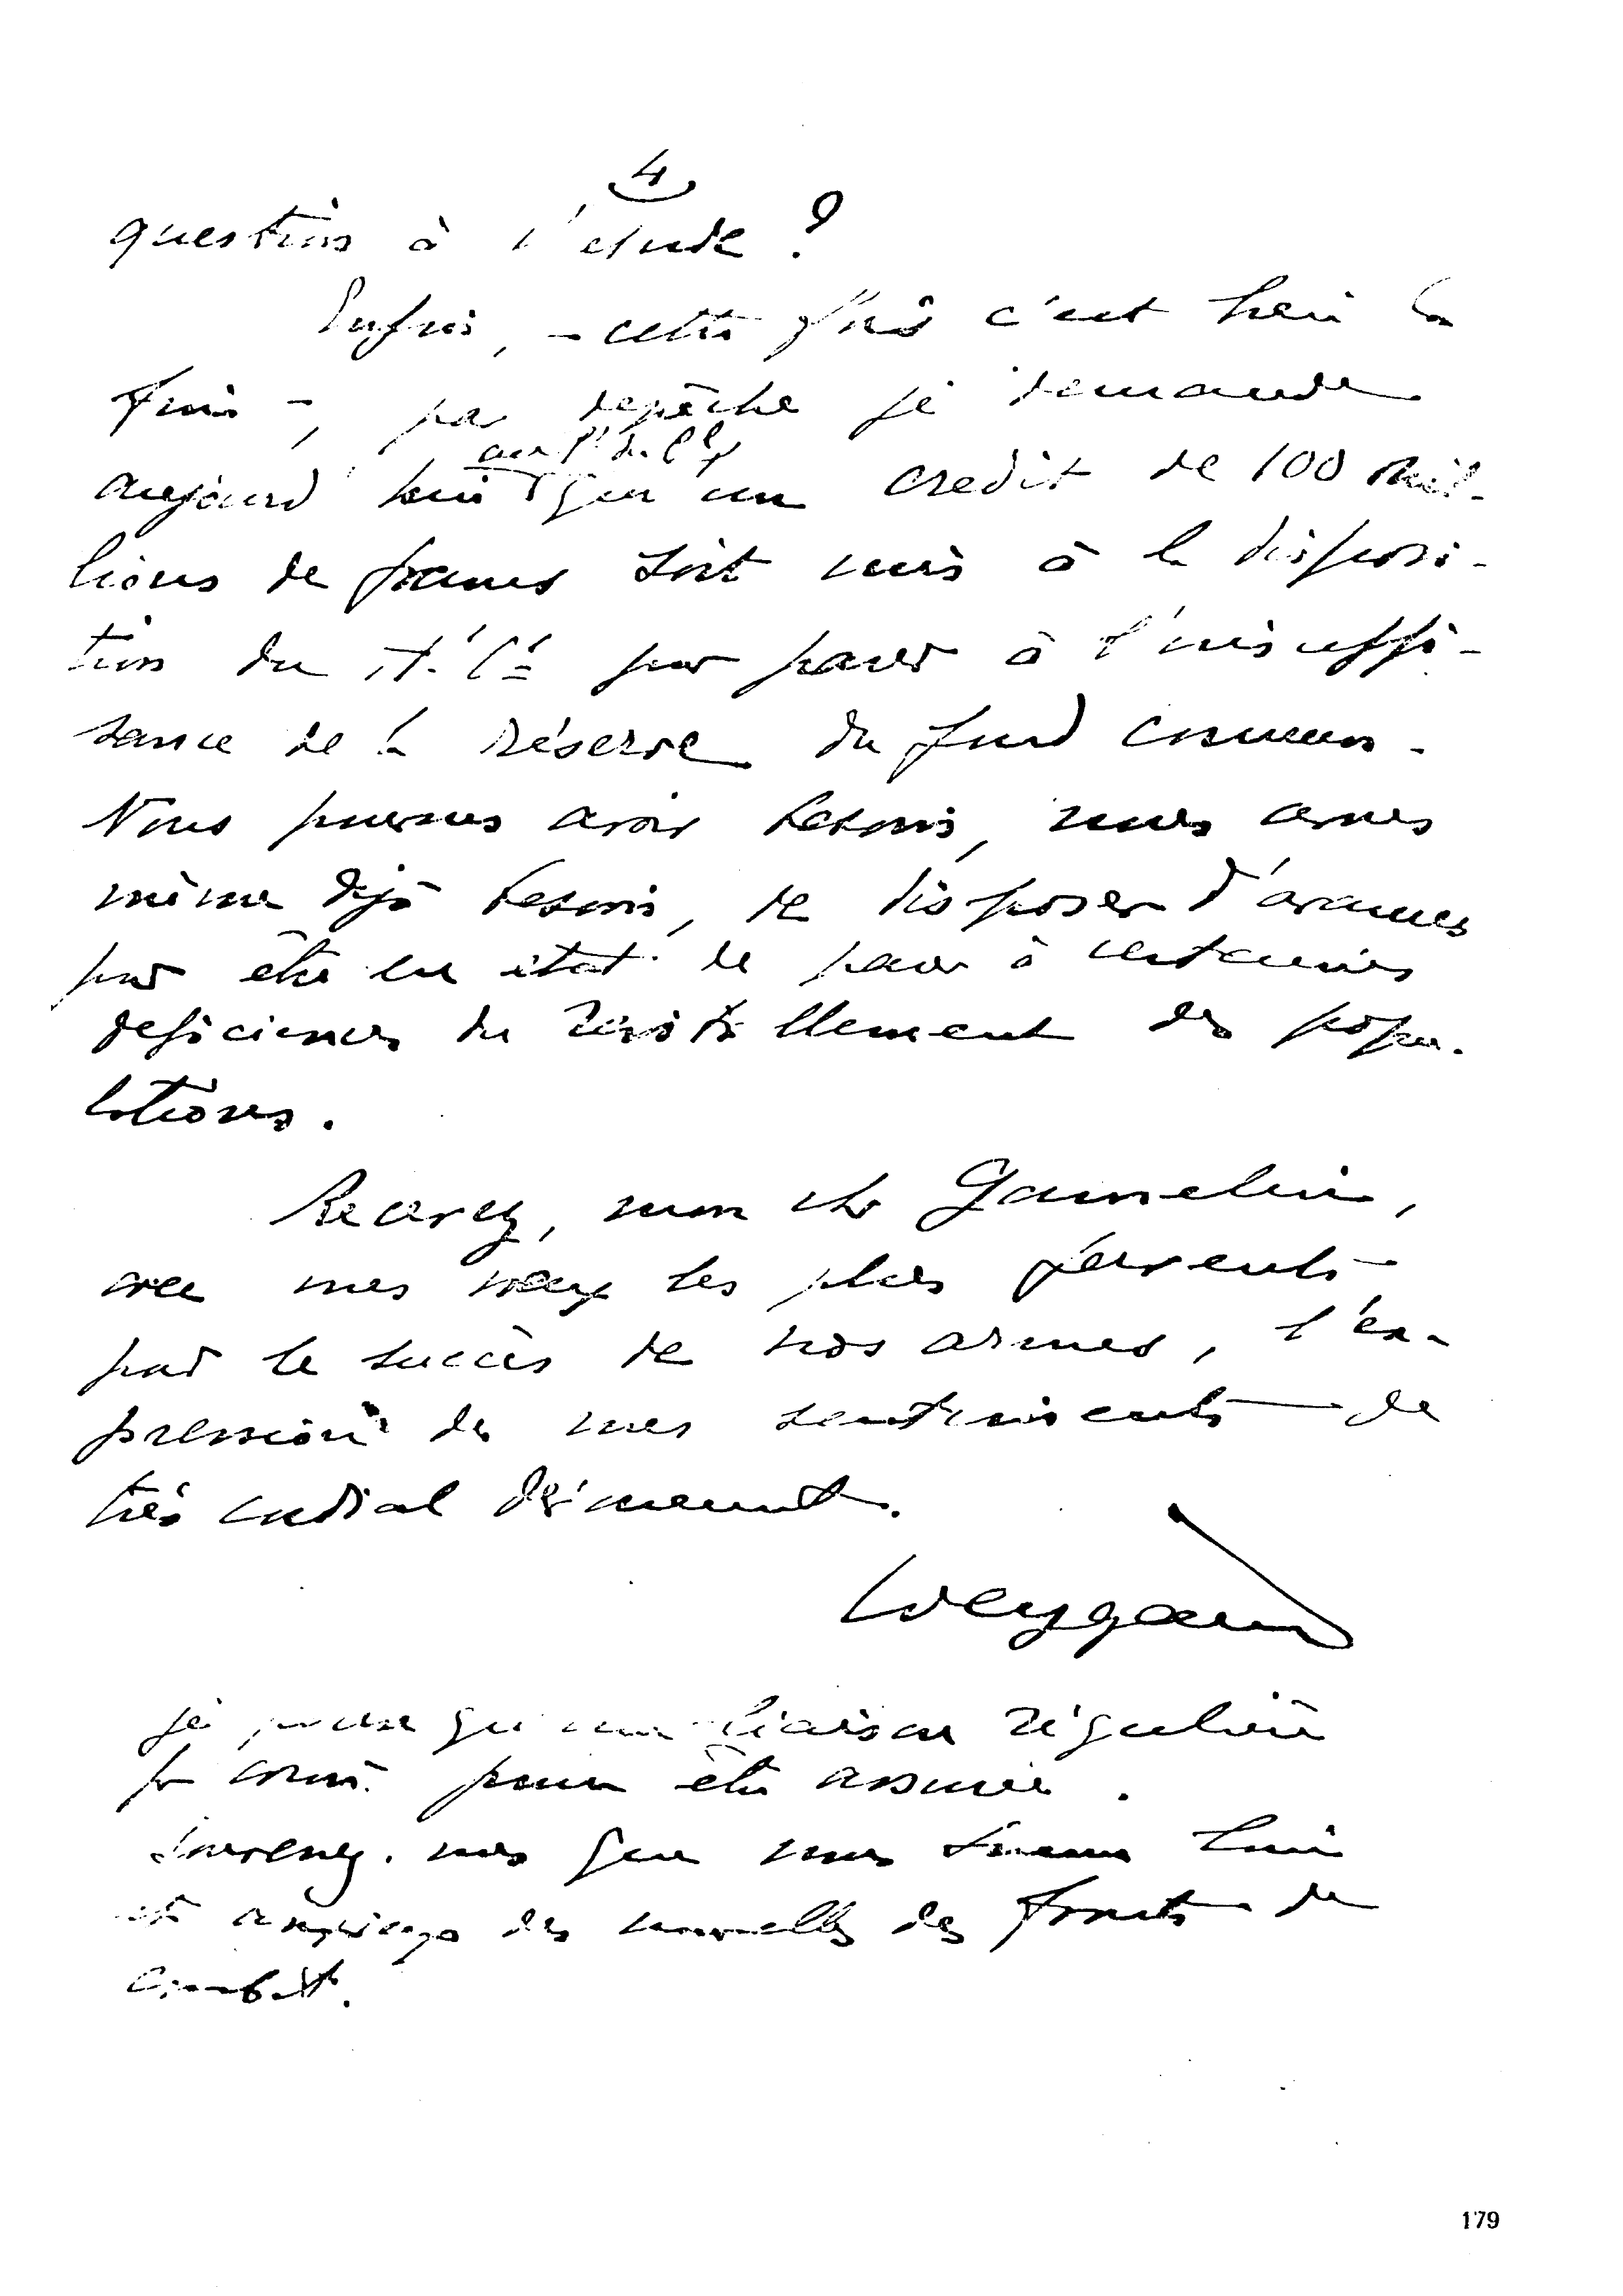 4
question à l'étude ?
Enfin, - cette fois c'est bien la
fin -, par dépêche je demande
aujourd'hui qu'un crédit de 100 mil-
lions de francs soit mis à la disposi-
tion du Ht. Cre pour parer à l'insuffi-
sance de la réserve du fond commun.
Nous pouvons avoir besoin, nous avons
même déjà besoin, de disposer d'avances
pour être en état de parer à certaines
déficiences du ravitaillement des popu-
lations.
Recevez, mon cher Gamelin,
avec mes vœux les plus fervents
pour le succès de nos armes, l'ex-
pression de mes sentiments de
très cordial dévouement.
Weygand
je pense qu'une liaison régulière
par courr. pourra être assurée.
Souvenez-vous que nous sommes loin
et anxieux des nouvelles des fronts de
combat.
179